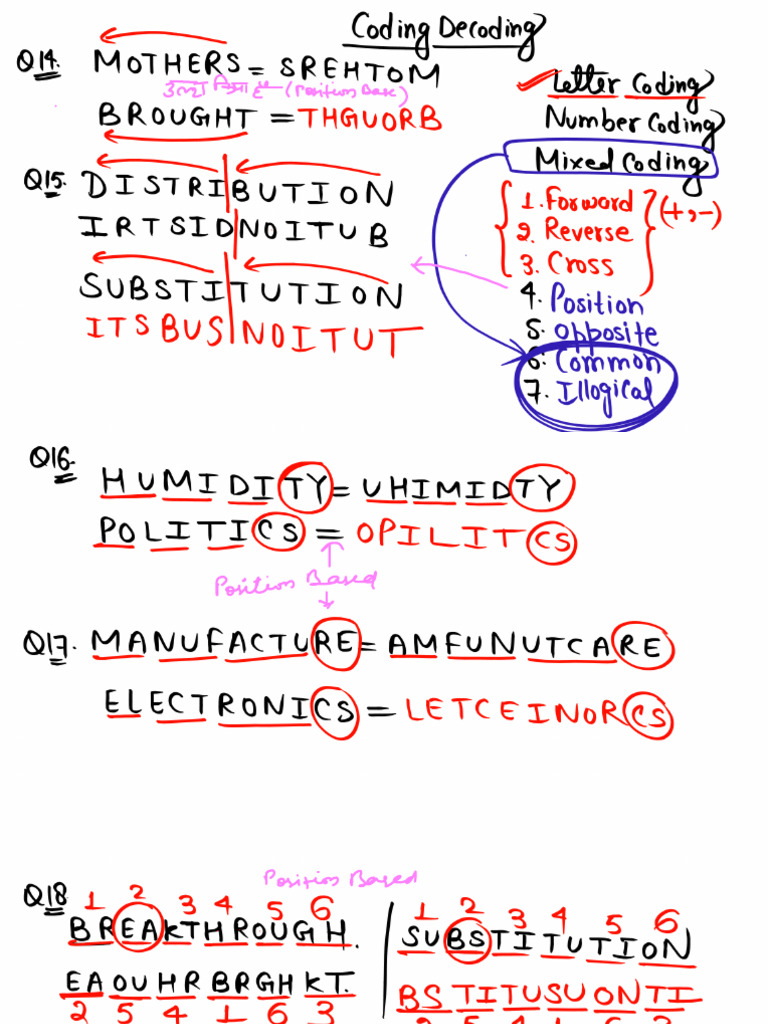 Coding Decoding
Q14. MOTHERS = SREHTOM
उल्टा लिखा है - (Position Base)
BROUGHT = THGUORB
Letter Coding
Number Coding
Mixed Coding
1. Forward
2. Reverse
3. Cross
(+,-)
4. Position
5. Opposite
6. Common
7. Illogical
Q15. DISTRI|BUTION
IRTSID|NOITUB
SUBSTI|TUTION
ITSBUS|NOITUT
Q16. HUMIDITY = UHIMIDTY
POLITICS = OPILITCS
Position Based
Q17. MANUFACTURE = AMFUNUTCARE
ELECTRONICS = LETCEINORCS
Position Based
Q18
1 2 3 4 5 6
BREAKTHROUGH.
EA OU HR BR GH KT.
2 5 4 1 6 3
1 2 3 4 5 6
SUBSTITUTION
BS TI TU SU ON TI